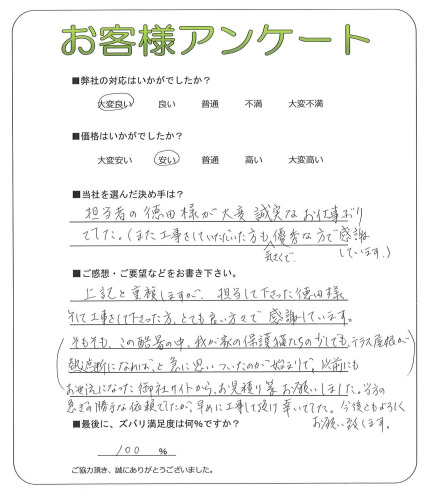 お客様アンケート
■弊社の対応はいかがでしたか？
大変良い 良い 普通 不満 大変不満
■価格はいかがでしたか？
大変安い 安い 普通 高い 大変高い
■当社を選んだ決め手は？
担当者の徳田様が大変誠実なお仕事ぶり
でした。(また工事をしていただいた方も優秀な方で感謝
気さくで、
しています。)
■ご感想・ご要望などをお書き下さい。
上記と重複しますが、担当して下さった徳田様
そして工事をして下さった方、とても良い方々で感謝しています。
そもそも、この酷暑の中、我が家の保護猫たちの少しでもテラス屋根が
熱遮断になればと急に思いついたのが始まりで、以前にも
お世話になった御社サイトから、お見積り等お願いしました。当方の
急ぎの勝手な依頼でしたが、早めに工事して頂け幸いでした。今後ともよろしく
お願い致します。
■最後に、ズバリ満足度は何％ですか？
100 ％
ご協力頂き、誠にありがとうございました。